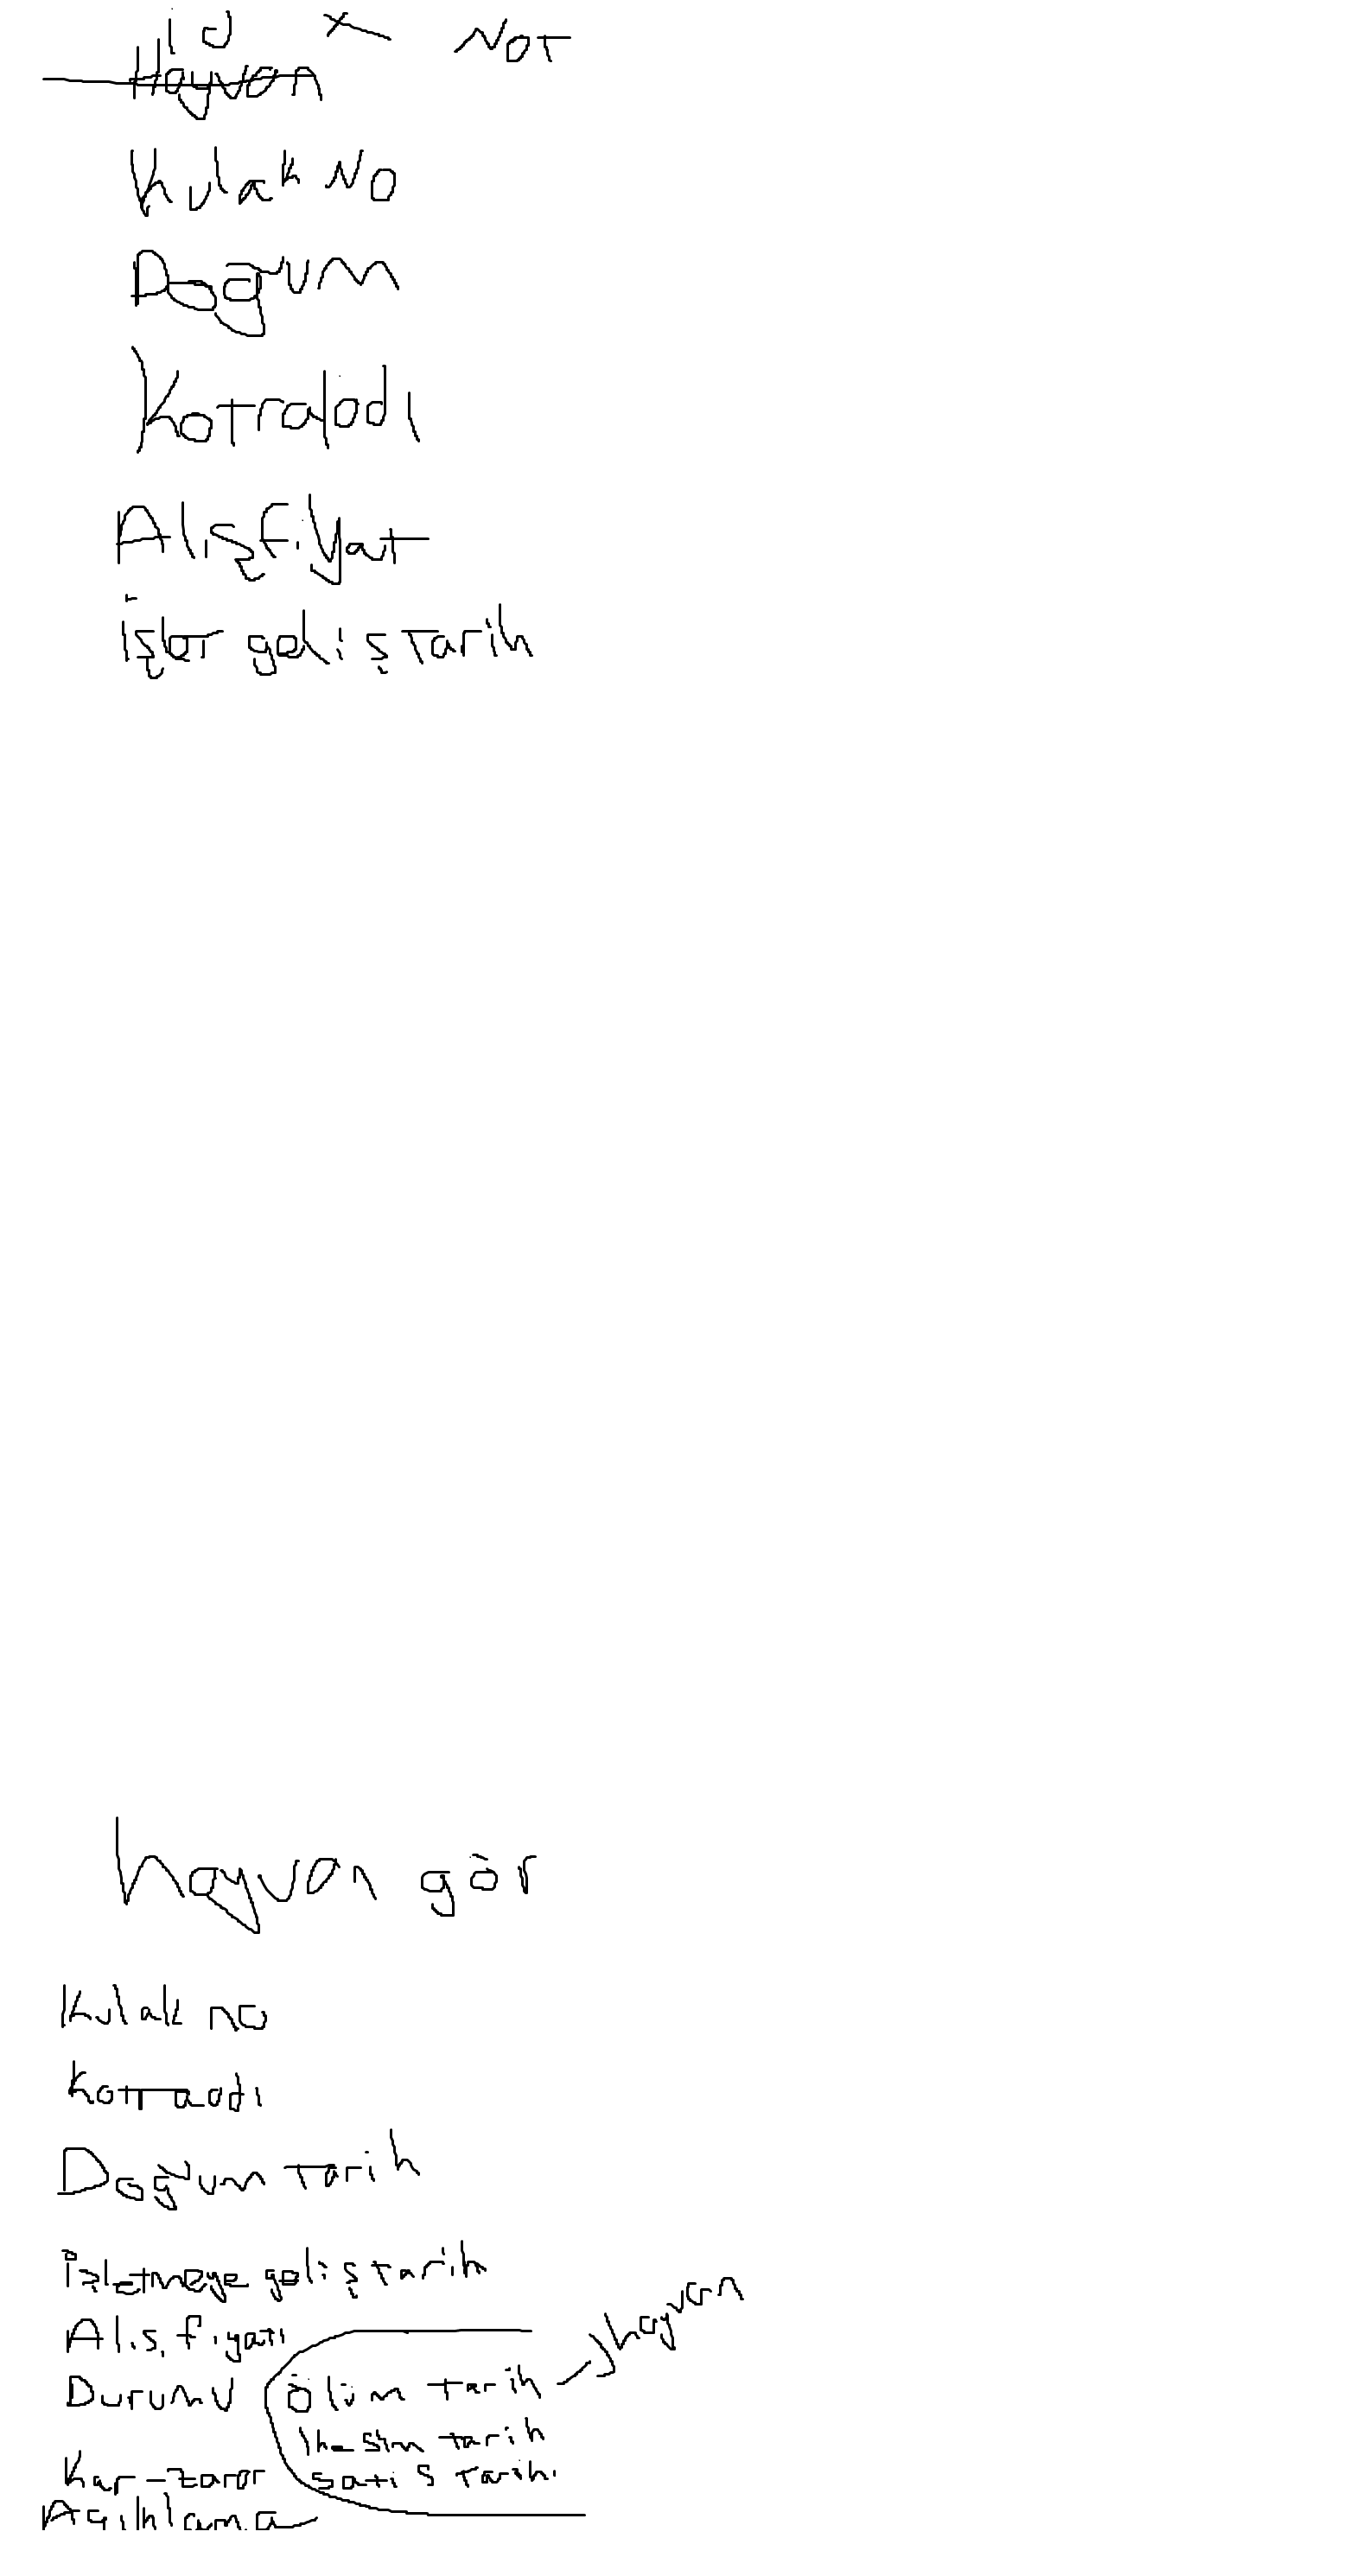 id x NOT
Hayvan
Kulak NO
Doğum
Kotraladı
Alışfiyat
işlet geliş Tarih
hayvan gör
Kulak no
Kotraadı
Doğum Tarih
işletmeye geliş tarih
Alış fiyatı
Durumu ölüm tarih hayvan
kesim tarih
Kar-zarar satiş Tarihi
Açıklama